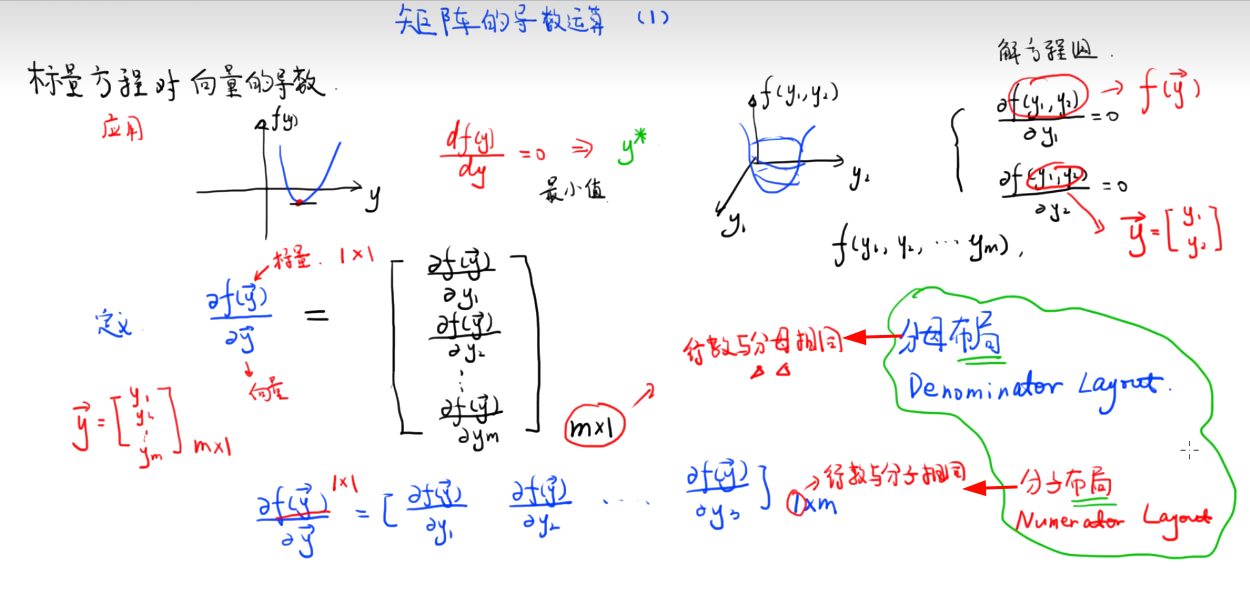 矩阵的导数运算 (1)
标量方程对向量的导数.
应用
f(y)
y
df(y)/dy = 0 ⇒ y*
最小值
f(y₁,y₂)
y₂
y₁
解方程组.
∂f(y₁,y₂)/∂y₁ = 0 → f(y⃗)
∂f(y₁,y₂)/∂y₂ = 0
y⃗ = [y₁ y₂]
f(y₁, y₂, ⋯ yₘ),
定义
标量. 1×1
∂f(y⃗)/∂y⃗ = [∂f(y⃗)/∂y₁ ∂f(y⃗)/∂y₂ ⋮ ∂f(y⃗)/∂yₘ] m×1
向量
y⃗ = [y₁ y₂ ⋮ yₘ] m×1
行数与分母相同
分母布局
Denominator Layout.
∂f(y⃗)/∂y⃗ 1×1 = [∂f(y⃗)/∂y₁ ∂f(y⃗)/∂y₂ ⋯ ∂f(y⃗)/∂y₃] 1×m
行数与分子相同
分子布局
Numerator Layout